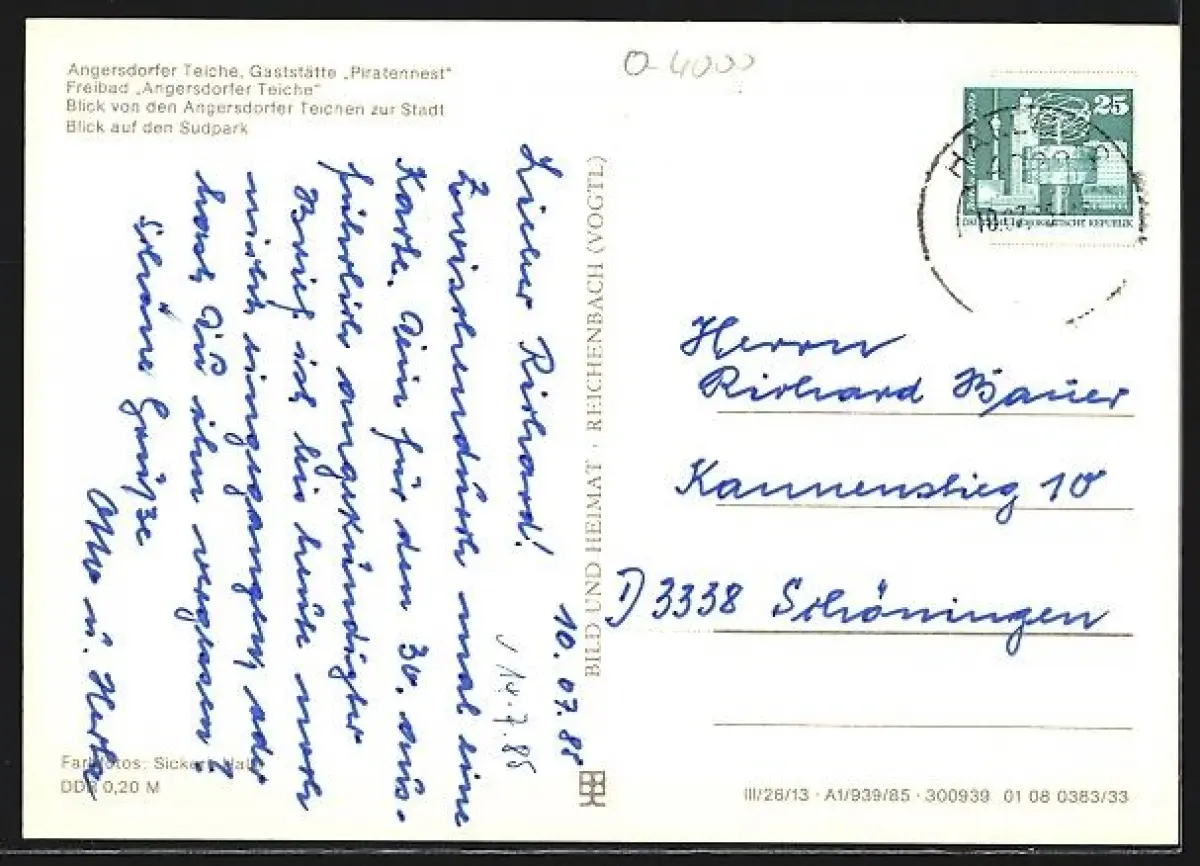 Angersdorfer Teiche, Gaststätte „Piratennest"
Freibad „Angersdorfer Teiche"
Blick von den Angersdorfer Teichen zur Stadt
Blick auf den Südpark
O-4000
25
HALLE
10.07
DEUTSCHE DEMOKRATISCHE REPUBLIK
10.07.85
14.7.85
Lieber Richard!
Zwischendurch mal eine
Karte. Dein für den 30. aus-
führlich angekündigter
Brief ist bis heute noch
nicht eingegangen, oder
hast Du ihn vergessen?
Schöne Grüße
u. Herta
BILD UND HEIMAT · REICHENBACH (VOGTL)
Herrn
Richard Bauer
Kannenstieg 10
D 3338 Schöningen
Farbfotos: Sickert, Halle
DDR 0,20 M
III/26/13 · A1/939/85 · 300939 01 08 0383/33